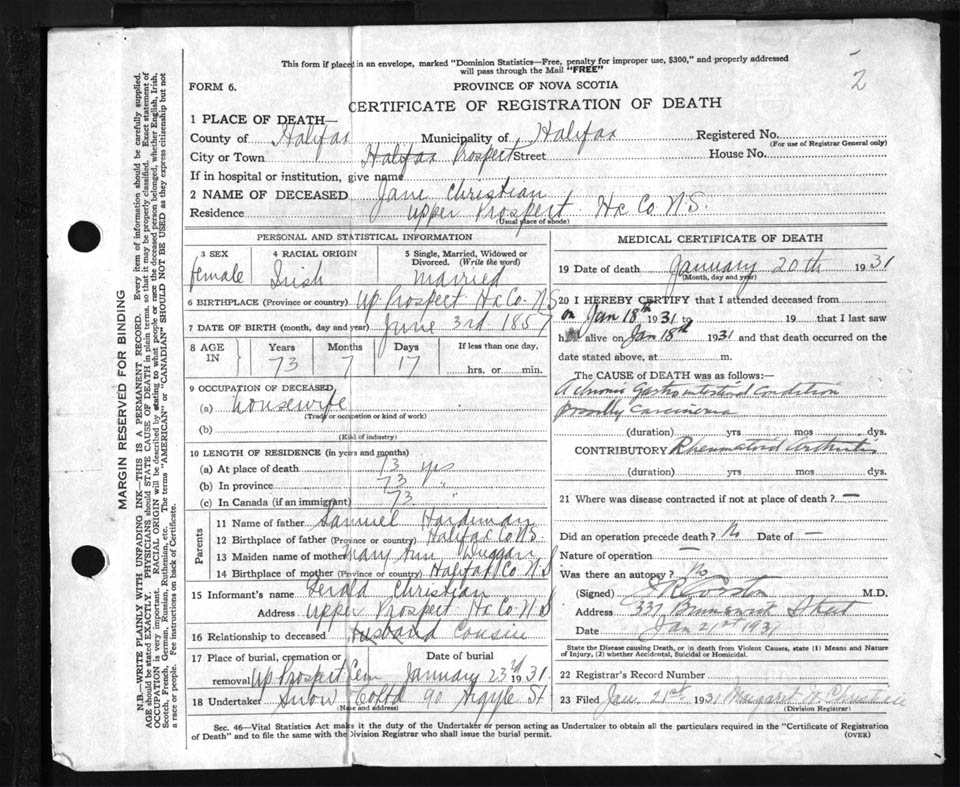 2
This form if placed in an envelope, marked "Dominion Statistics—Free, penalty for improper use, $300," and properly addressed
will pass through the Mail "FREE"
FORM 6.
PROVINCE OF NOVA SCOTIA
CERTIFICATE OF REGISTRATION OF DEATH
1 PLACE OF DEATH—
County of Halifax Municipality of Halifax Registered No.
(For use of Registrar General only)
City or Town Halifax Prospect Street House No.
If in hospital or institution, give name
2 NAME OF DECEASED Jane Christian
Residence Upper Prospect Hx Co. N.S.
(Usual place of abode)
PERSONAL AND STATISTICAL INFORMATION
3 SEX 4 RACIAL ORIGIN 5 Single, Married, Widowed or
Divorced. (Write the word)
female Irish Married
6 BIRTHPLACE (Province or country) Up Prospect Hx Co. N.S
7 DATE OF BIRTH (month, day and year) June 3rd 1857
8 AGE IN Years Months Days If less than one day,
73 7 17 hrs. or min.
9 OCCUPATION OF DECEASED
(a) housewife
(Trade or occupation or kind of work)
(b)
(Kind of industry)
10 LENGTH OF RESIDENCE (in years and months)
(a) At place of death 73 yrs
(b) In province 73 "
(c) In Canada (if an immigrant) 73 "
Parents
11 Name of father Samuel Hardiman
12 Birthplace of father (Province or country) Halifax Co N.S.
13 Maiden name of mother Mary Ann Duggan
14 Birthplace of mother (Province or country) Halifax Co. N.S
15 Informant's name Gerald Christian
Address Upper Prospect Hx Co. N.S
16 Relationship to deceased Husband Cousin
17 Place of burial, cremation or removal Date of burial
Up Prospect Cem January 23rd 1931
18 Undertaker Snow Co Ltd 90 Argyle St
(Name and address)
MEDICAL CERTIFICATE OF DEATH
19 Date of death January 20th 1931
(Month, day and year)
20 I HEREBY CERTIFY that I attended deceased from
on Jan 18th 1931 to 19 that I last saw
h alive on Jan 18th 1931 and that death occurred on the
date stated above, at m.
The CAUSE OF DEATH was as follows:—
A chronic Gastro intestinal Condition
possibly Carcinoma
(duration) yrs mos dys.
CONTRIBUTORY Rheumatoid Arthritis
(duration) yrs mos dys.
21 Where was disease contracted if not at place of death? —
Did an operation precede death? No Date of —
Nature of operation —
Was there an autopsy? No
(Signed) M.D.
Address 337 Brunswick Street
Date Jan 21st 1931
State the Disease causing Death, or in death from Violent Causes, state (1) Means and Nature
of Injury, (2) whether Accidental, Suicidal or Homicidal.
22 Registrar's Record Number
23 Filed Jan. 21st 1931 Margaret Christian
(Division Registrar)
Sec. 46—Vital Statistics Act makes it the duty of the Undertaker or person acting as Undertaker to obtain all the particulars required in the "Certificate of Registration
of Death" and to file the same with the Division Registrar who shall issue the burial permit.
(OVER)
MARGIN RESERVED FOR BINDING
N.B.—WRITE PLAINLY WITH UNFADING INK—THIS IS A PERMANENT RECORD. Every item of information should be carefully supplied.
AGE should be stated EXACTLY. PHYSICIANS should STATE CAUSE OF DEATH in plain terms, so that it may be properly classified. Exact statement of
OCCUPATION is very important. RACIAL ORIGIN will be described by stating to what people or race the deceased person belonged, whether English, Irish,
Scotch, French, German, Russian, Ruthenian, etc. The terms "AMERICAN" or "CANADIAN" SHOULD NOT BE USED as they express citizenship but not
a race or people. See instructions on back of Certificate.